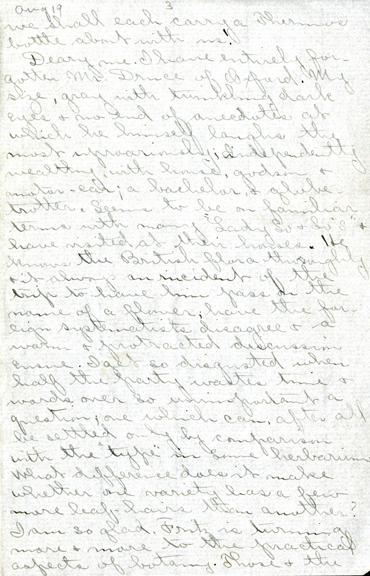 Aug 19
3
we shall each carry a Thermos
bottle about with us!
Deary me. I have entirely for-
gotten Mr. Druce of Oxford. My
size, gray with twinkling dark
eyes & no end of anecdotes at
which he himself laughs the
most uproariously; independently
wealthy, with house, godson &
motor-car; a bachelor & globe-
trotter. Seems to be on familiar
terms with many "Lady So & So's" &
have visited at their houses. He
knows the British flora thoroughly
& it always an incident of the
trip to have him pass on the
name of a flower; have the for-
eign systematists disagree & a
warm & protracted discussion
ensue. I get so disgusted when
half the party wastes time &
words over so unimportant a
question; one which can, after all
be settled only by comparison
with the "type" in some herbarium.
What difference does it make
whether one variety has a few
more leaf-hairs than another?
I am so glad Fritz is turning
more & more to the practical
aspects of botany. Those & the